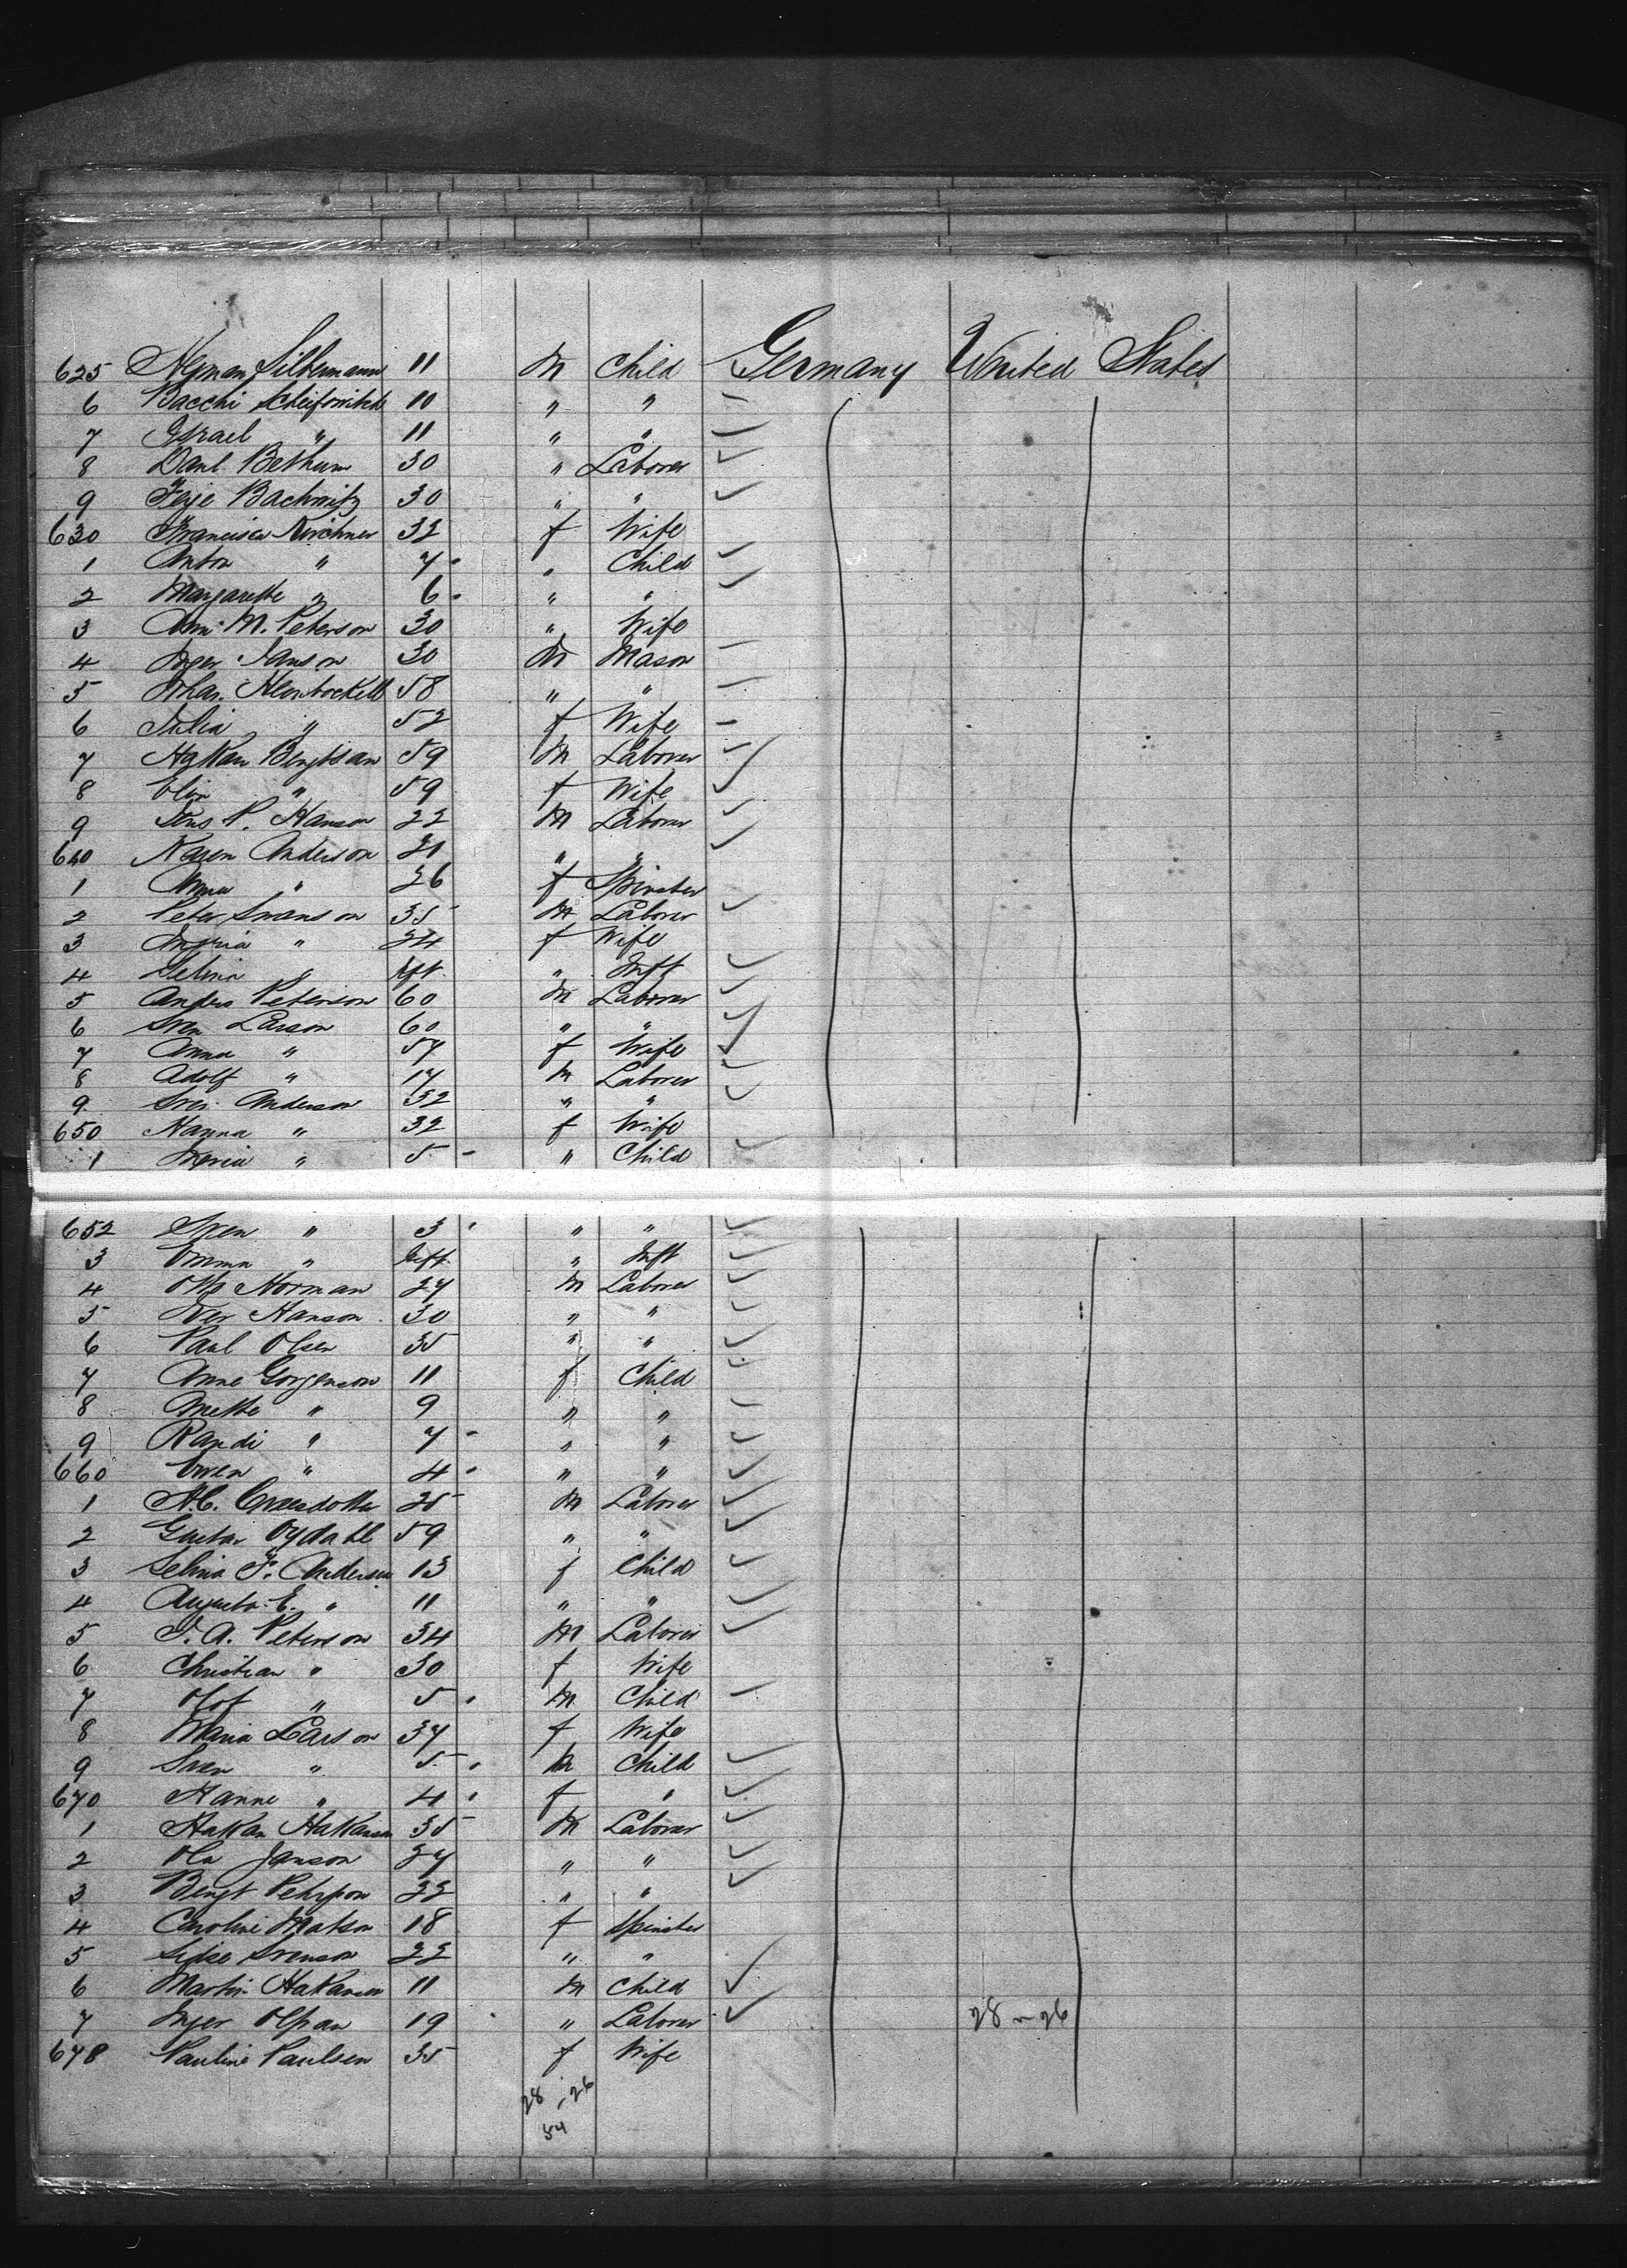 625 Heyman Silbermann 11 M Child Germany United States
6 Bacchi 10 " "
7 Israel " 11 " "
8 Danl. Bethum 30 " Laborer
9 Feye Bachnitz 30 " "
630 Francisca Kirchner 32 f Wife
1 Anton " 7 " Child
2 Margarethe " 6 " "
3 M. Peterson 30 " Wife
4 Inger Janson 30 M Mason
5 58 " "
6 Julia " 52 f Wife
7 Hakan 59 M Laborer
8 Elin " 59 f Wife
9 Jens P. Hanson 22 M Laborer
640 Anderson 21 " "
1 Anna " 26 f Spinster
2 Peter Swanson 35 M Laborer
3 " 24 f Wife
4 Selma " Inft " Inft
5 Anders Peterson 60 M Laborer
6 Sven Larson 60 " "
7 Anna " 57 f Wife
8 Adolf " 17 M Laborer
9 Sven Anderson 32 " "
650 Hanna " 32 f Wife
1 Maria " 5 " Child
652 Sven " 3 " "
3 Emma " Inft " Inft
4 Otto Norman 27 M Laborer
5 Iver Hanson 30 " "
6 Paul Olsen 35 " "
7 Anne Gorgenson 11 f Child
8 Mette " 9 " "
9 Randi " 7 " "
660 " 4 " "
1 25 M Laborer
2 Gustav 59 " "
3 Selma F. Anderson 13 f Child
4 Augusta E. " 11 " "
5 J. A. Peterson 34 M Laborer
6 Christian " 30 f Wife
7 Olof " 5 M Child
8 Maria Larson 37 f Wife
9 Sven " 5 M Child
670 Hanne " 4 f "
1 Hakan Hakanson 35 M Laborer
2 Ola Janson 27 " "
3 Bengt Pehrson 22 " "
4 Caroline Matson 18 f Spinster
5 Svenson 22 " "
6 Martin Hakanson 11 M Child
7 Inger Olson 19 " Laborer 28 - 26
678 Pauline Paulsen 35 f Wife
28 - 26
54